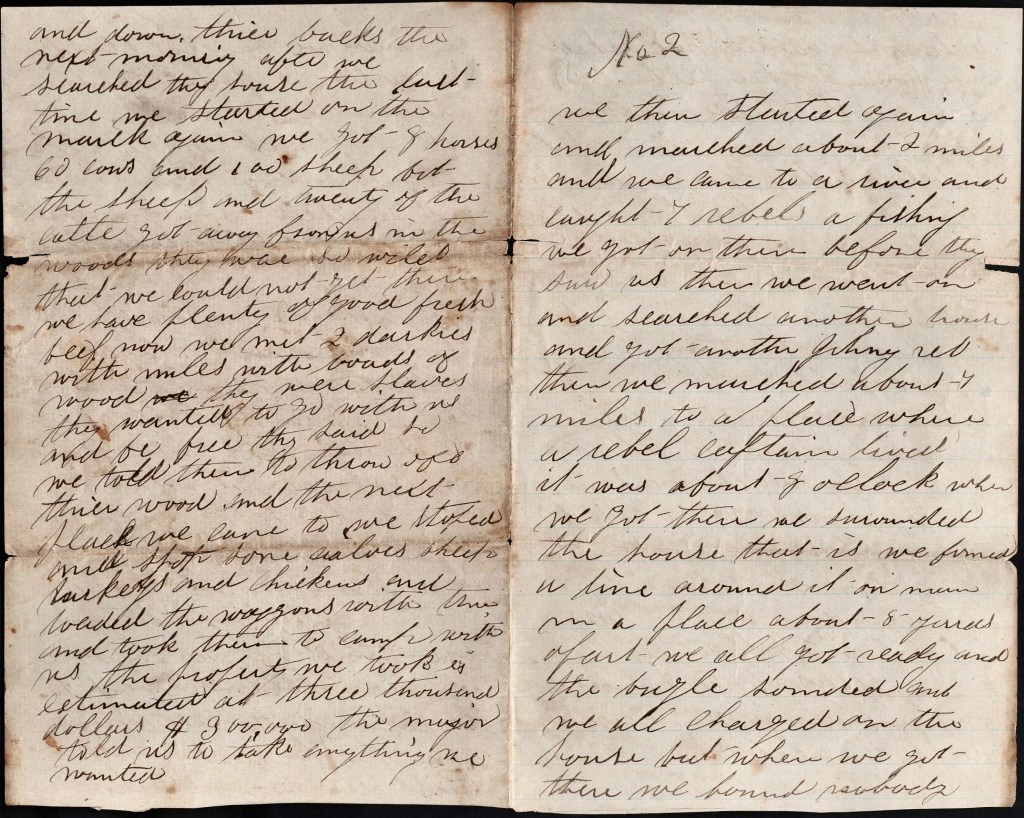 and down. thier backs the
next morning after we
searched thy house the last
time we started on the
march again we got 8 horses
60 cows and 100 sheep but
the sheep and twenty of the
catte got away from us in the
woods they ware so wiled
that we could not get them
we have plenty of good fresh
beef now we met 2 darkies
with mules with loads of
wood we they were slaves
they wanted to go with us
and be free thy said so
we told them to throw off
thier wood and the next
place we came to we stoped
and shot some calves sheep
turkeys and chickens and
loaded the waggons with them
and took them to camp with
us the propert we took is
estimated at three thousand
dollars $ 300,000 the major
told us to take anything we
wanted
No 2
we then started again
and marched about 2 miles
and we came to a river and
caught 7 rebels a fishing
we got on them before thy
saw us then we went on
and searched another house
and got another Johny reb
then we marched about 7
miles to a place where
a rebel captain lived
it was about 8 oclock when
we got there we surounded
the house that is we formed
a line around it on man
in a place about 8 yards
apart we all got ready and
the bugle sounded and
we all charged on the
house but when we got
there we found nobody